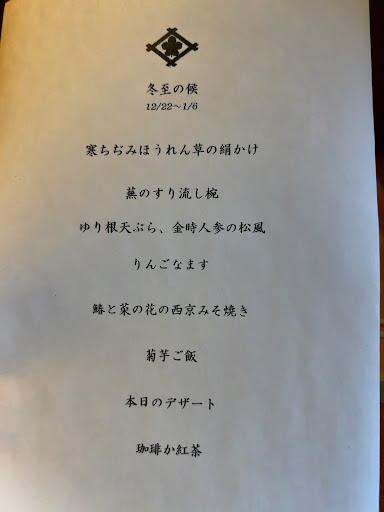 冬至の候
12/22～1/6
寒ちぢみほうれん草の絹かけ
蕪のすり流し椀
ゆり根天ぷら、金時人参の松風
りんごなます
鰆と菜の花の西京みそ焼き
菊芋ご飯
本日のデザート
珈琲か紅茶